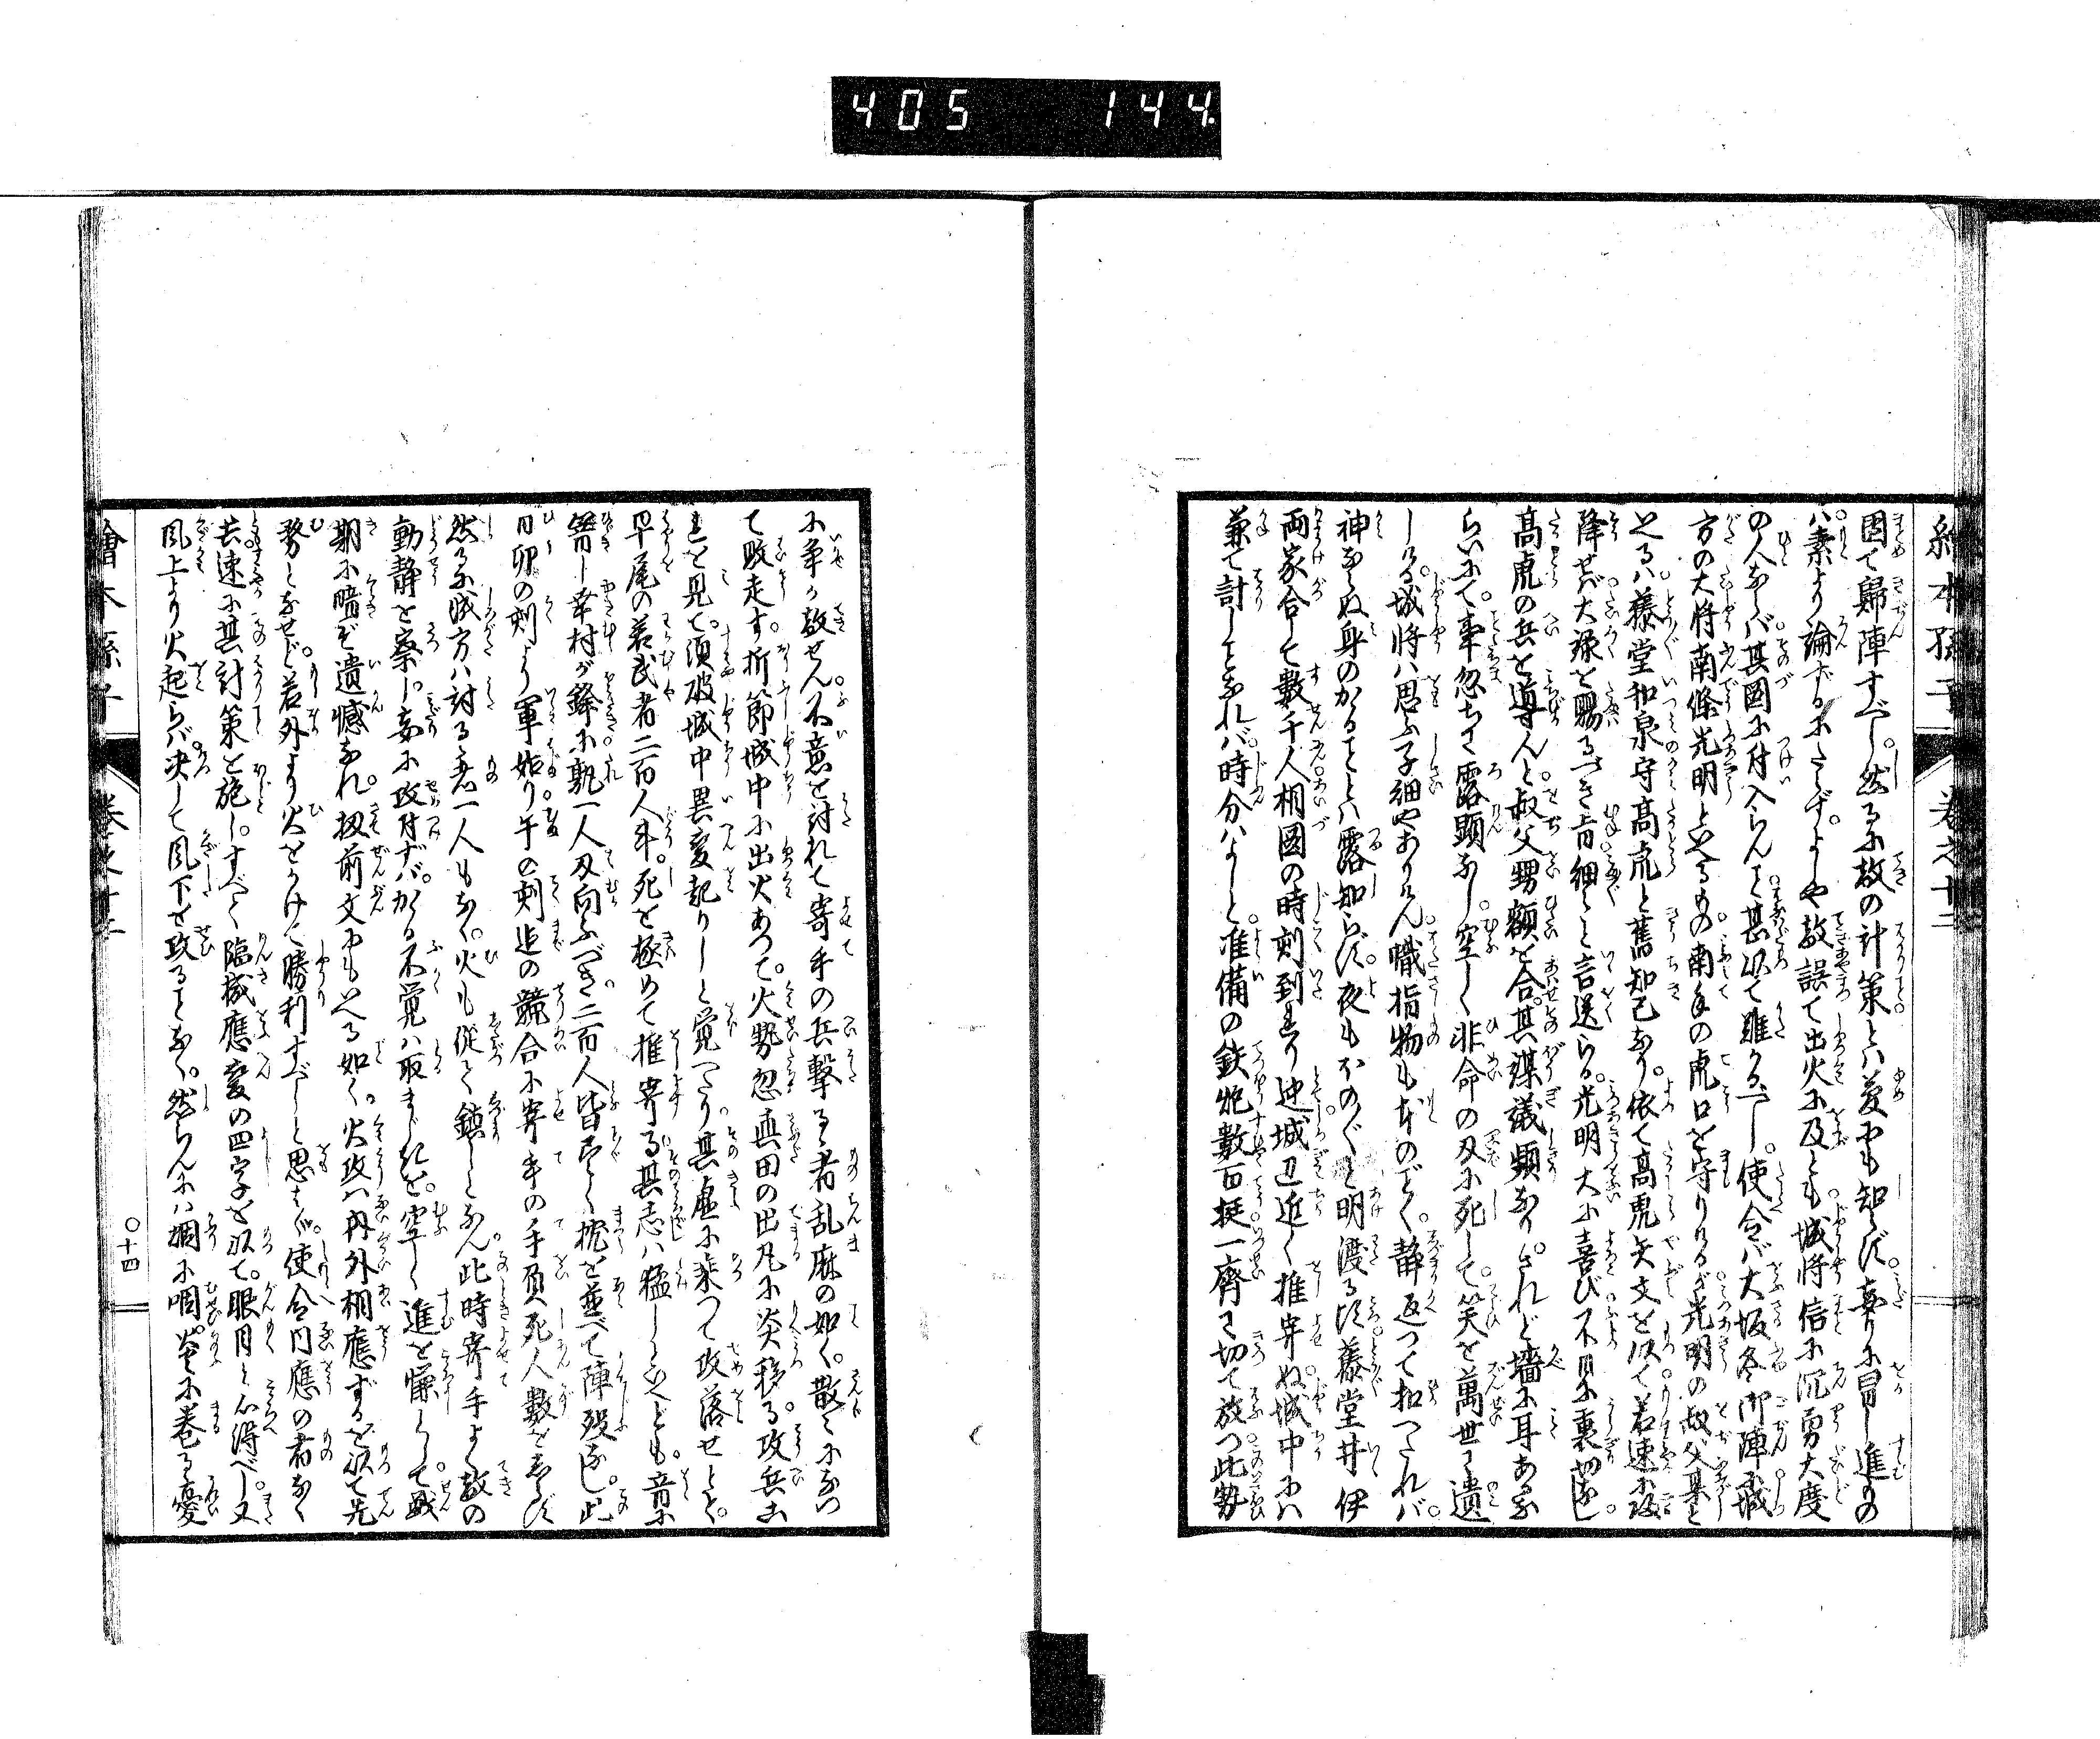 405 144.
繪本孫子 巻之十二
固て歸陣すべし。然るに敵の計策とハ夢にも知らず。妄りに冒し進むの
ハ素より論ずるにたらず。よしや敵誤て出火に及とも。城将信に沉勇大度
の人ならバ。其圖に付入らんこと。甚以て難かるべし。使令バ大坂冬御陣に。城
方の大将南條光明といへるもの。南手の虎口を守りけるが。光明の叔父某と
いへるハ。藤堂和泉守高虎と舊知己なり。依て高虎矢文を以て。若速に返
降せバ。大禄を賜るべき旨。細々と言送らる。光明大に喜び。不日に裏切なし。
高虎の兵を導んと。叔父甥額を合。其謀議頻なり。されど墻に耳あるな
らいにて。事忽ちに露顕なし。空しく非命の刃に死して。笑を萬世に遺
しける。城将ハ思ふ子細やありけん。幟指物ももとのごとく。静返つて扣へたれバ。
神ならぬ身のかゝることとハ露知らず。夜もほのぐと明渡る比。藤堂井伊
両家合して數千人。相圖の時刻到れりと。城辺近く推寄ぬ。城中にハ
兼て計しことなれバ。時分ハよしと。准備の鉄炮數百挺。一齊に切て放つ。此勢
に争か敵せん。不意を討れて寄手の兵。撃るゝ者乱麻の如く。散々になつ
て敗走す。折節城中に出火あつて。火勢忽真田の出丸に炎移る。攻兵こ
れを見て。須破城中異変起りしと覚へたり。其虚に乗つて攻落せとて。
早尾の若武者二百人斗。死を極めて推寄る。其志ハ猛しといへども。音に
響し幸村が鋒に。孰一人刃向ふべき。二百人皆尽く枕を並べて陣歿なし。此
日卯の刻より軍始り。午の刻迄の競合に。寄手の手負死人數をしらず。
然るに城方ハ討るゝ者一人もなく。火も従て鎮しとなん。此時寄手よく敵の
動静を察し。妄に攻付ずバ。かゝる不覚ハ取まじきを。空しく進を慊くして。戦
期に暗ぞ遺憾なれ。扨前文にもいへる如く。火攻ハ内外相應ずるを以て先
務となせど。若外より火をかけて勝利すべしと思はゞ。使令内應の者なく
共。速に其計策を施し。すべて臨機應変の四字を以て。眼目と心得べし。又
風上より火起らバ。决して風下を攻ることなく。然らんにハ烟に咽。炎に巻るゝ憂
繪本孫子 巻之十二 〇十四